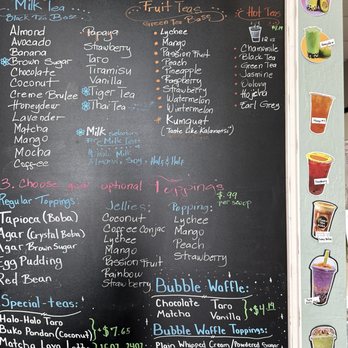 Milk Tea
Black Tea Base
Almond
Avocado
Banana
Brown Sugar
Chocolate
Coconut
Creme Brulee
Honeydew
Lavender
Matcha
Mango
Mocha
Coffee
Papaya
Strawberry
Taro
Tiramisu
Vanilla
Tiger Tea
Thai Tea
Milk
Almond, Soy, Half & Half
Fruit Teas
Green Tea Base
Lychee
Mango
Passion Fruit
Peach
Pineapple
Raspberry
Strawberry
Watermelon
Wintermelon
Kumquat
(Taste Like Kalamansi)
Hot Teas
Chamomile
Black Tea
Green Tea
Jasmine
Oolong
Hojicha
Earl Grey
3. Choose your optional Toppings
$.99
per scoop
Regular Toppings:
Tapioca (Boba)
Agar (Crystal Boba)
Agar Brown Sugar
Egg Pudding
Red Bean
Jellies:
Coconut
Coffee Conjac
Lychee
Mango
Passion Fruit
Rainbow
Strawberry
Popping:
Lychee
Mango
Peach
Strawberry
Special-teas:
Halo-Halo Taro
Buko Pandan (Coconut)
$7.65
Matcha Lava
Bubble Waffle:
Chocolate Taro
Matcha Vanilla
$4.19
Bubble Waffle Toppings:
Plain Whipped Cream/Powdered Sugar